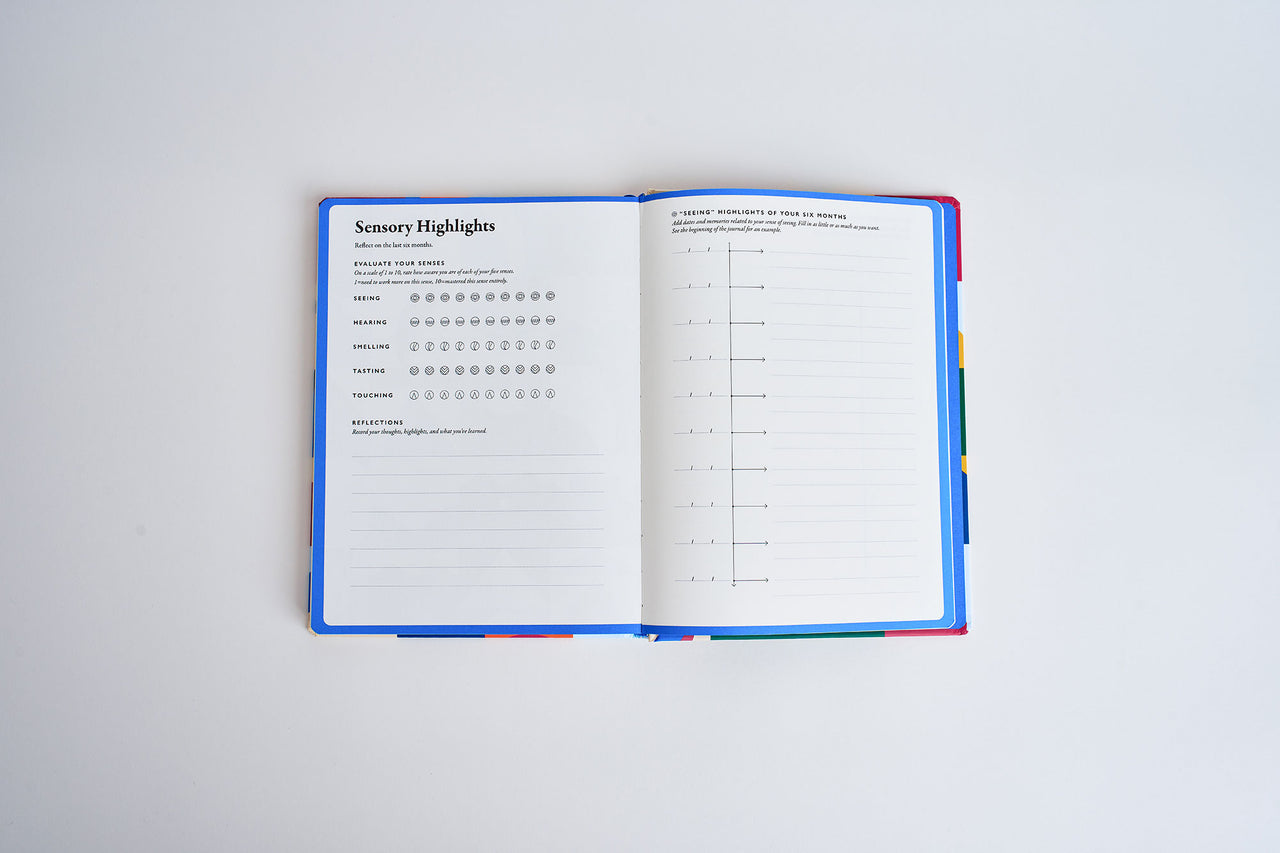 Sensory Highlights
Reflect on the last six months.
EVALUATE YOUR SENSES
On a scale of 1 to 10, rate how aware you are of each of your five senses.
1=need to work more on this sense, 10=mastered this sense entirely.
SEEING
HEARING
SMELLING
TASTING
TOUCHING
REFLECTIONS
Record your thoughts, highlights, and what you've learned.
"SEEING" HIGHLIGHTS OF YOUR SIX MONTHS
Add dates and memories related to your sense of seeing. Fill in as little or as much as you want.
See the beginning of the journal for an example.